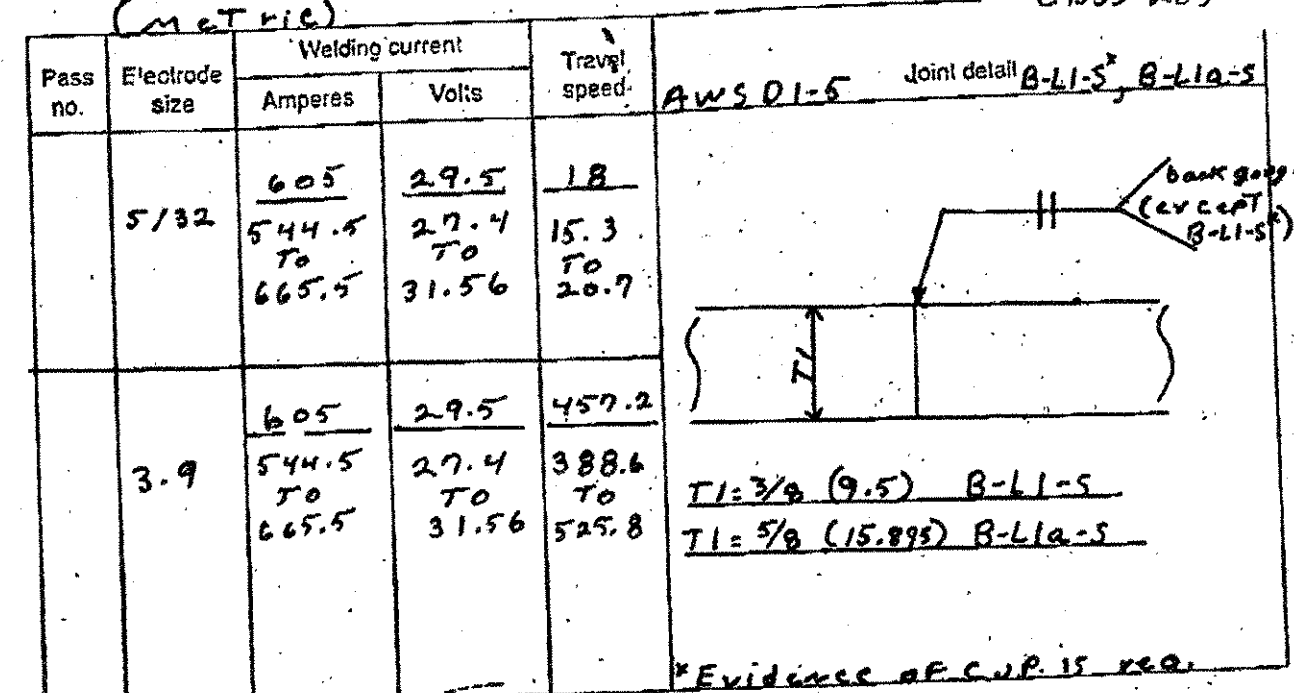 (Metric)
Pass no.
Electrode size
Welding current
Amperes
Volts
Travel speed
AWS D1-5 Joint detail B-L1-S*, B-L1a-S
5/32
605
544.5
TO
665.5
29.5
27.4
TO
31.56
18
15.3
TO
20.7
back goug.
(except
B-L1-S*)
T1
3.9
605
544.5
TO
665.5
29.5
27.4
TO
31.56
457.2
388.6
TO
525.8
T1= 3/8 (9.5) B-L1-S
T1= 5/8 (15.895) B-L1a-S
*Evidence of CJP. is req.